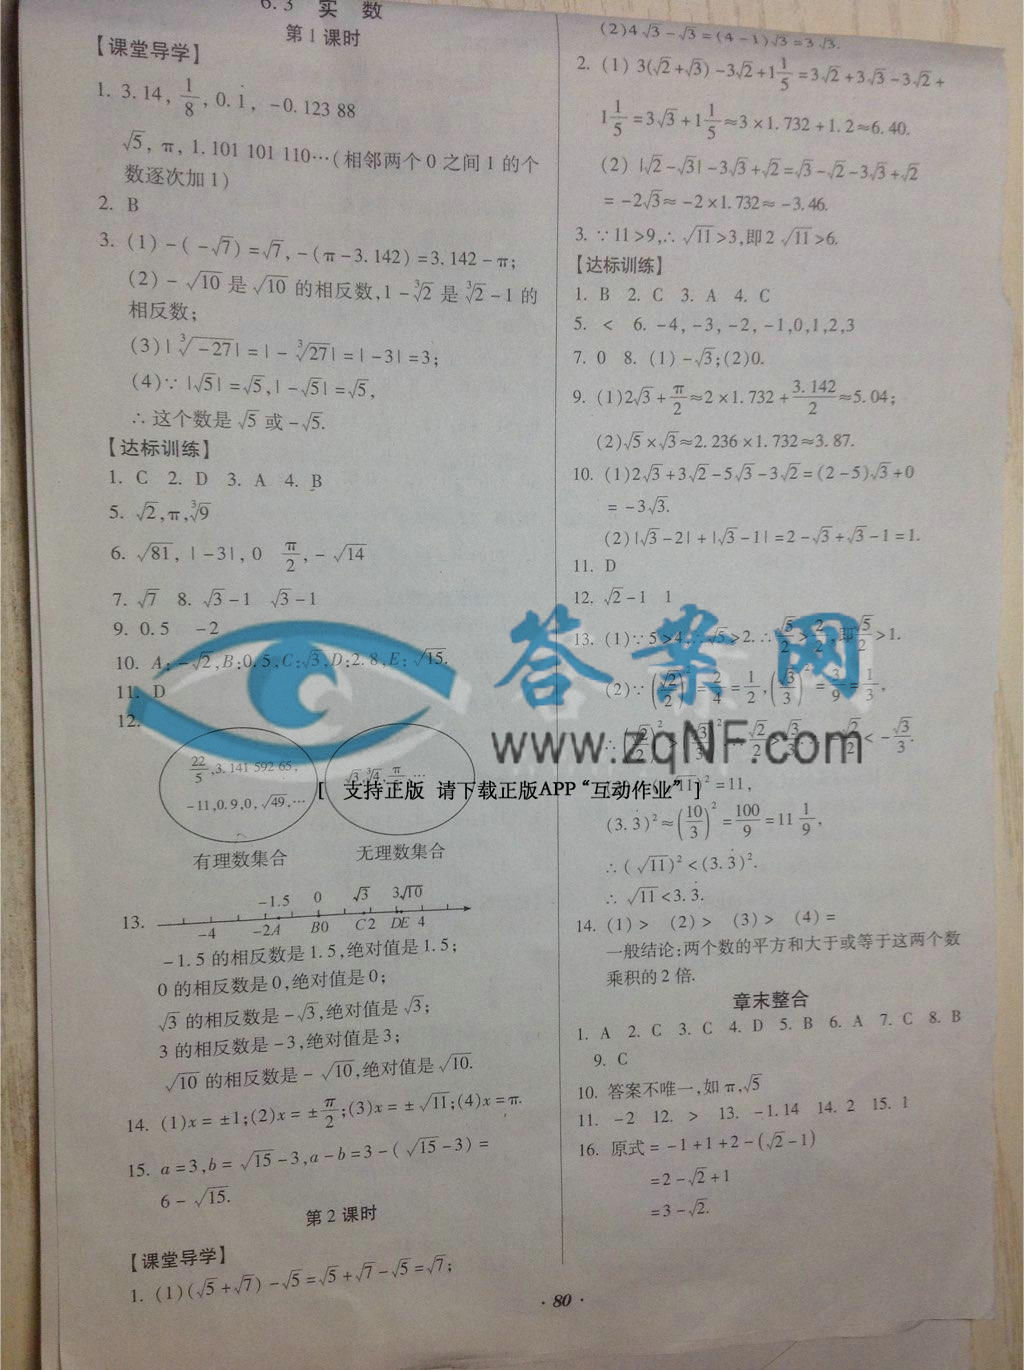 6.3 实 数
第1课时
【课堂导学】
1. 3.14, 1/8, 0.1̇, -0.123 88
√5, π, 1.101 101 110…(相邻两个0之间1的个
数逐次加1)
2. B
3. (1)-(-√7)=√7,-(π-3.142)=3.142-π;
(2)-√10是√10的相反数,1-∛2是∛2-1的
相反数;
(3)|∛-27|=|-∛27|=|-3|=3;
(4)∵|√5|=√5,|-√5|=√5,
∴这个数是√5或-√5.
【达标训练】
1. C 2. D 3. A 4. B
5. √2,π,∛9
6. √81, |-3|, 0 π/2, -√14
7. √7 8. √3-1 √3-1
9. 0.5 -2
10. A:-√2,B:0.5,C:√3,D:2.8,E:√15.
11. D
12.
22/5,3.141 592 65, √3,∛4,π
-11,0.9,0,√49,…
有理数集合 无理数集合
13. -1.5 0 √3 3√10
-4 -2A B0 C2 DE 4
-1.5的相反数是1.5,绝对值是1.5;
0的相反数是0,绝对值是0;
√3的相反数是-√3,绝对值是√3;
3的相反数是-3,绝对值是3;
√10的相反数是-√10,绝对值是√10.
14. (1)x=±1;(2)x=±π/2;(3)x=±√11;(4)x=π.
15. a=3,b=√15-3,a-b=3-(√15-3)=
6-√15.
第2课时
【课堂导学】
1. (1)(√5+√7)-√5=√5+√7-√5=√7;
(2)4√3-√3=(4-1)√3=3√3.
2. (1) 3(√2+√3)-3√2+1 1/5=3√2+3√3-3√2+
1 1/5=3√3+1 1/5≈3×1.732+1.2≈6.40.
(2) |√2-√3|-3√3+√2=√3-√2-3√3+√2
=-2√3≈-2×1.732≈-3.46.
3. ∵11>9,∴√11>3,即2√11>6.
【达标训练】
1. B 2. C 3. A 4. C
5. < 6. -4,-3,-2,-1,0,1,2,3
7. 0 8. (1)-√3;(2)0.
9. (1)2√3+π/2≈2×1.732+3.142/2≈5.04;
(2)√5×√3≈2.236×1.732≈3.87.
10. (1)2√3+3√2-5√3-3√2=(2-5)√3+0
=-3√3.
(2)|√3-2|+|√3-1|=2-√3+√3-1=1.
11. D
12. √2-1 1
13. (1)∵5>4,∴√5>2.∴√5/2>2/2,即√5/2>1.
(2)∵(√2/2)²=2/4=1/2,(√3/3)²=3/9=1/3,
∴(√2/2)²>(√3/3)² √2/2>√3/3 -√2/2<-√3/3.
√11)²=11,
(3.3̇)²≈(10/3)²=100/9=11 1/9,
∴(√11)²<(3.3̇)².
∴√11<3.3̇.
14. (1)> (2)> (3)> (4)=
一般结论:两个数的平方和大于或等于这两个数
乘积的2倍.
章末整合
1. A 2. C 3. C 4. D 5. B 6. A 7. C 8. B
9. C
10. 答案不唯一,如π,√5
11. -2 12. > 13. -1.14 14. 2 15. 1
16. 原式=-1+1+2-(√2-1)
=2-√2+1
=3-√2.
·80·
答案网
www.zqNF.com
[ 支持正版 请下载正版APP“互动作业” ]